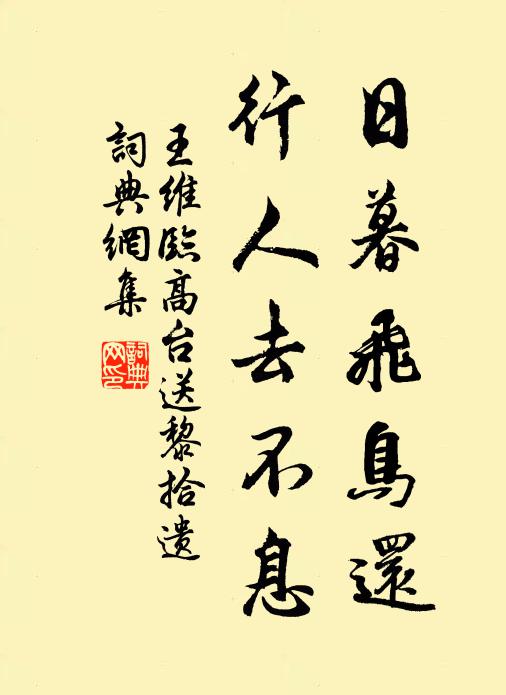 日暮飛鳥還
行人去不息
王維臨高台送黎拾遺
詞典網集
詞典網印